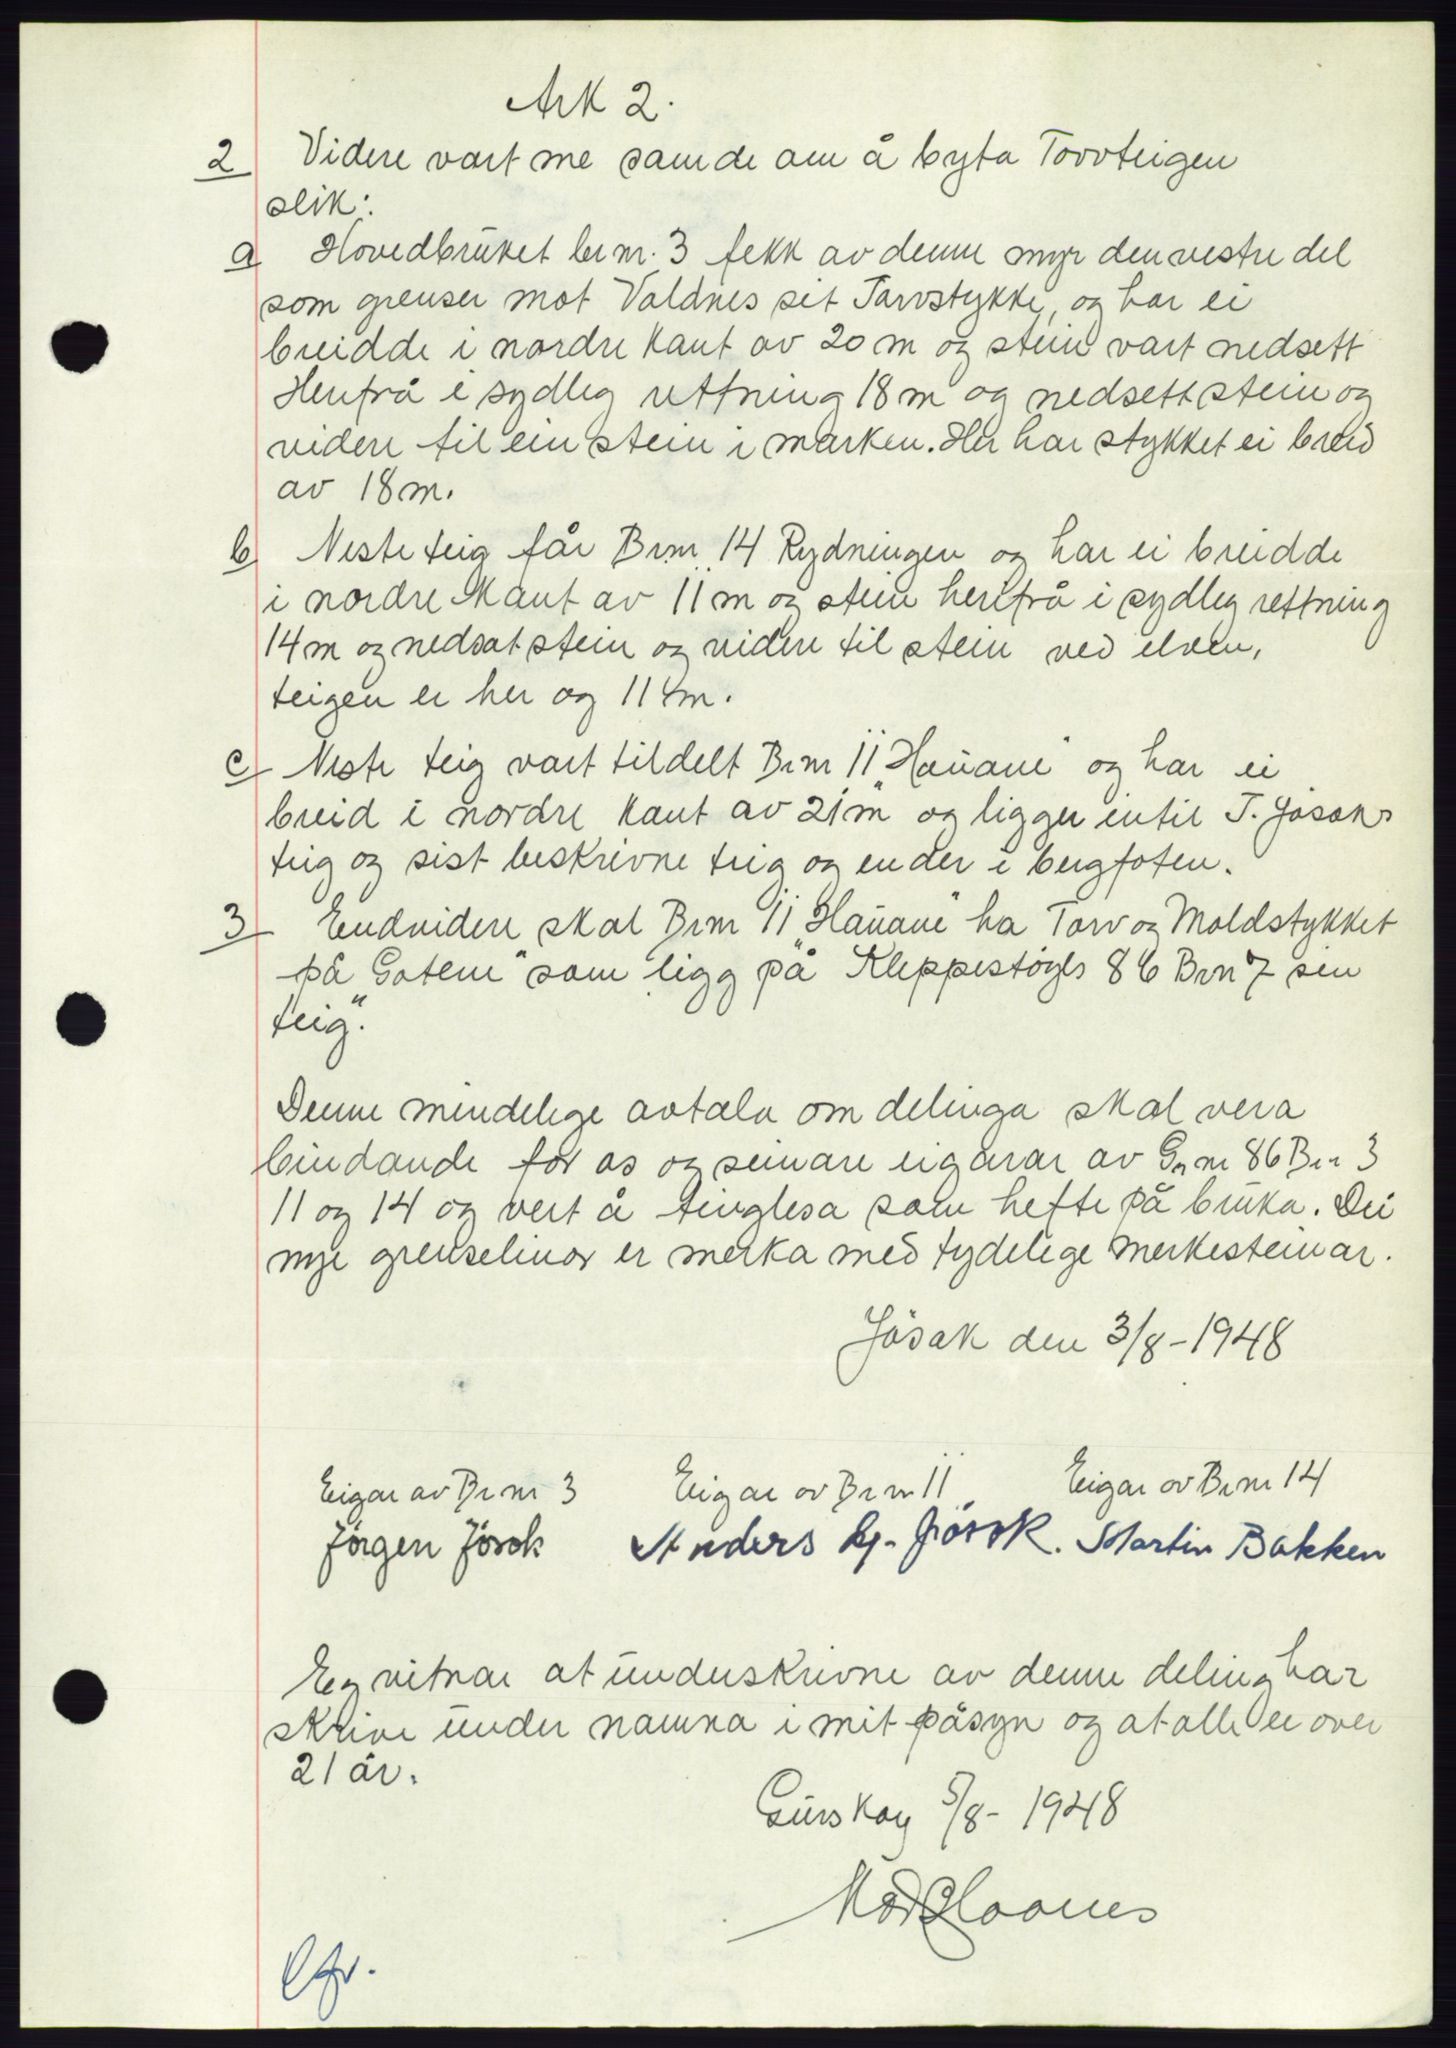 Ark 2.
2 Videre vart me samde om å byta Torvteigen
slik:
a Hovedbruket br nr. 3 fekk av denne myr den vestre del
som grenser mot Valdnes sit Torvstykke, og har ei
breidde i nordre kant av 20 m og stein vart nedsett
Herifrå i sydleg rettning 18 m og nedsett stein og
videre til ein stein i marken. Her har stykket ei breid
av 18 m.
b Neste teig får Brnr 14 Rydningen og har ei breidde
i nordre Kant av 11 m og stein herifrå i sydleg rettning
14 m og nedsat stein og videre til stein ved elven,
teigen er her og 11 m.
c Neste teig vart tildelt Brnr 11 "Haŭane" og har ei
breid i nordre kant av 21 m og ligger intil J. Jøsoks
teig og sist beskrivne teig og ender i bergfoten.
3 Endvidere skal Brnr 11 "Haŭane" ha Torv og Moldstykket
på "Gotene" som ligg på "Kleppestøyls 86 Brn 7 sin
teig".
Denne mindelege avtale om delinga skal vera
bindande for os og seinare eigarar av Gnr 86 Brn 3
11 og 14 og vert å tinglesa som hefte på brŭka. Dei
nye grenselinor er merka med tydelege merkesteinar.
Jøsok den 3/8-1948
Eigar av Brnr 3 Eigar av Brnr 11 Eigar av Brnr 14
Jørgen Jøsok Anders Kj. Jøsok. Martin Bakken
Eg vitnar at ŭnderskrivne av denne deling har
skrive ŭnder namna i mit påsyn og at alle er over
21 år.
Gŭrskøy 5/8-1948